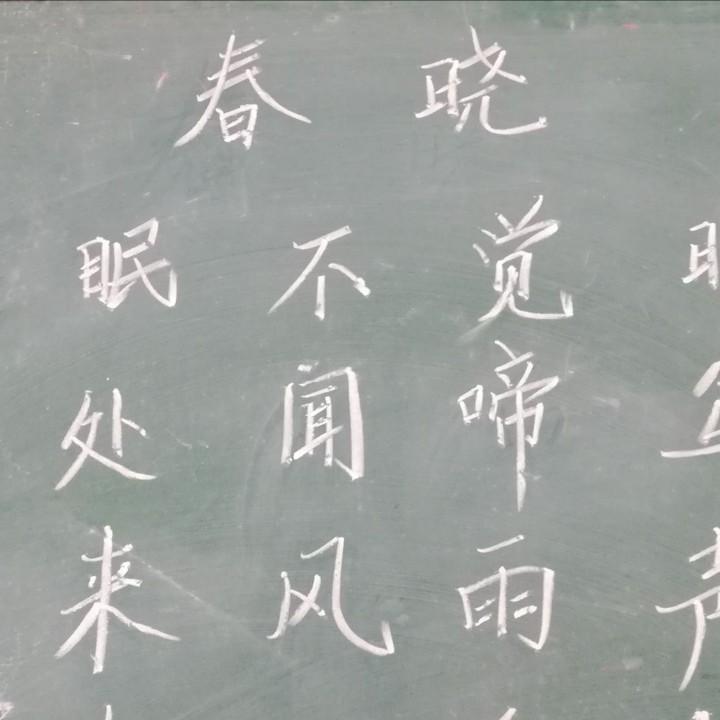 春晓
眠不觉
处闻啼
来风雨声